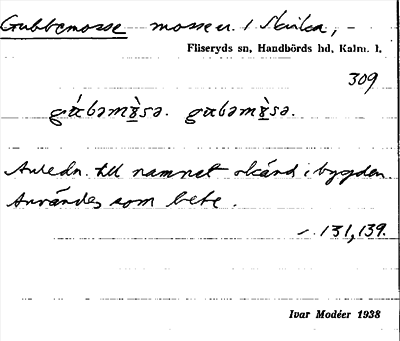 Gubbemosse mosse u. / Skirla, -
Fliseryds sn, Handbörds hd, Kalm. l.
309
Anledn. till namnet okänd i bygden.
Användes som bete.
- 131, 139.
Ivar Modéer 1938